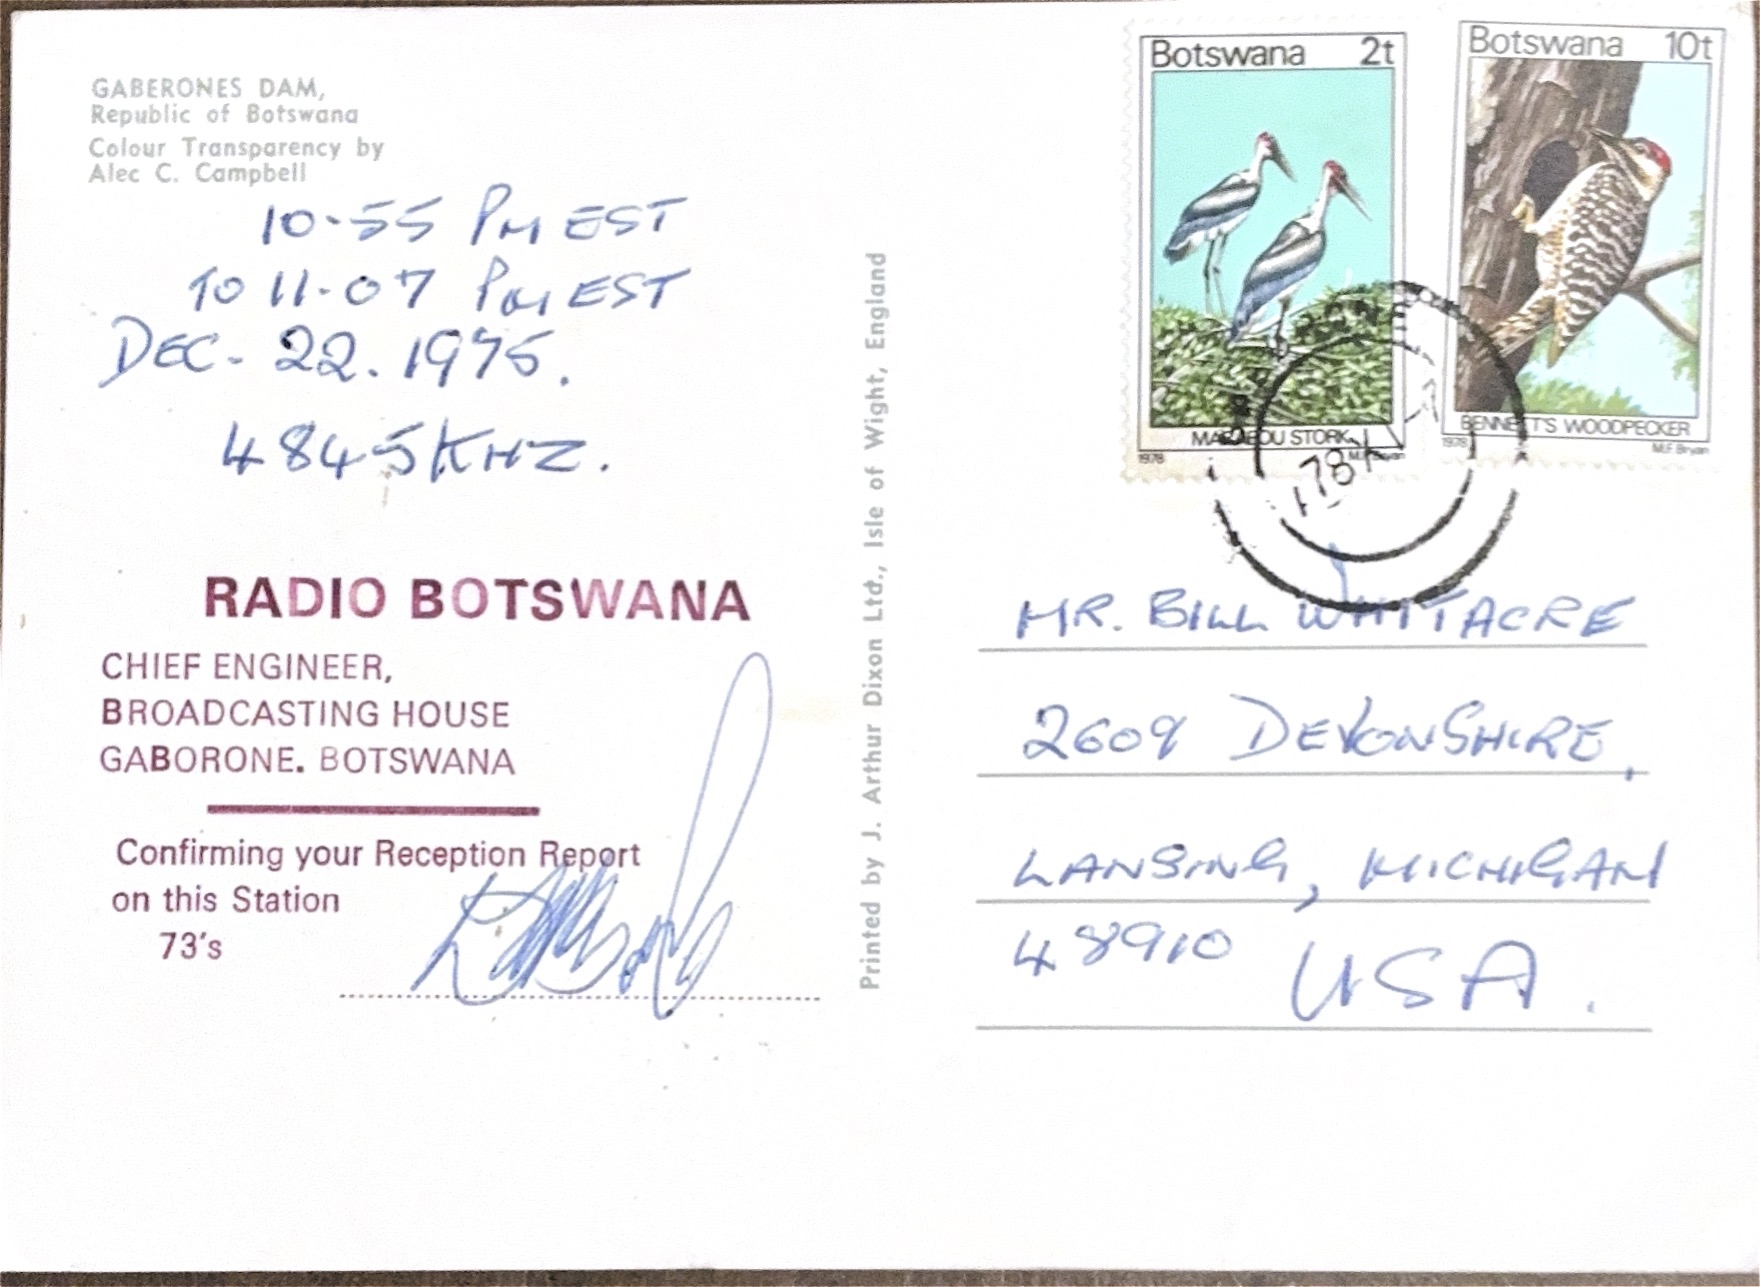 GABERONES DAM,
Republic of Botswana
Colour Transparency by
Alec C. Campbell
10-55 PM EST
TO 11-07 PM EST
DEC- 22. 1975.
4845 KHZ.
RADIO BOTSWANA
CHIEF ENGINEER,
BROADCASTING HOUSE
GABORONE. BOTSWANA
Confirming your Reception Report
on this Station
73's
Printed by J. Arthur Dixon Ltd., Isle of Wight, England
Botswana 2t
MARABOU STORK
1978
Botswana 10t
BENNETT'S WOODPECKER
1978 M.F. Bryan
MR. BILL WHITACRE
2609 DEVONSHIRE,
LANSING, MICHIGAN
48910 USA.